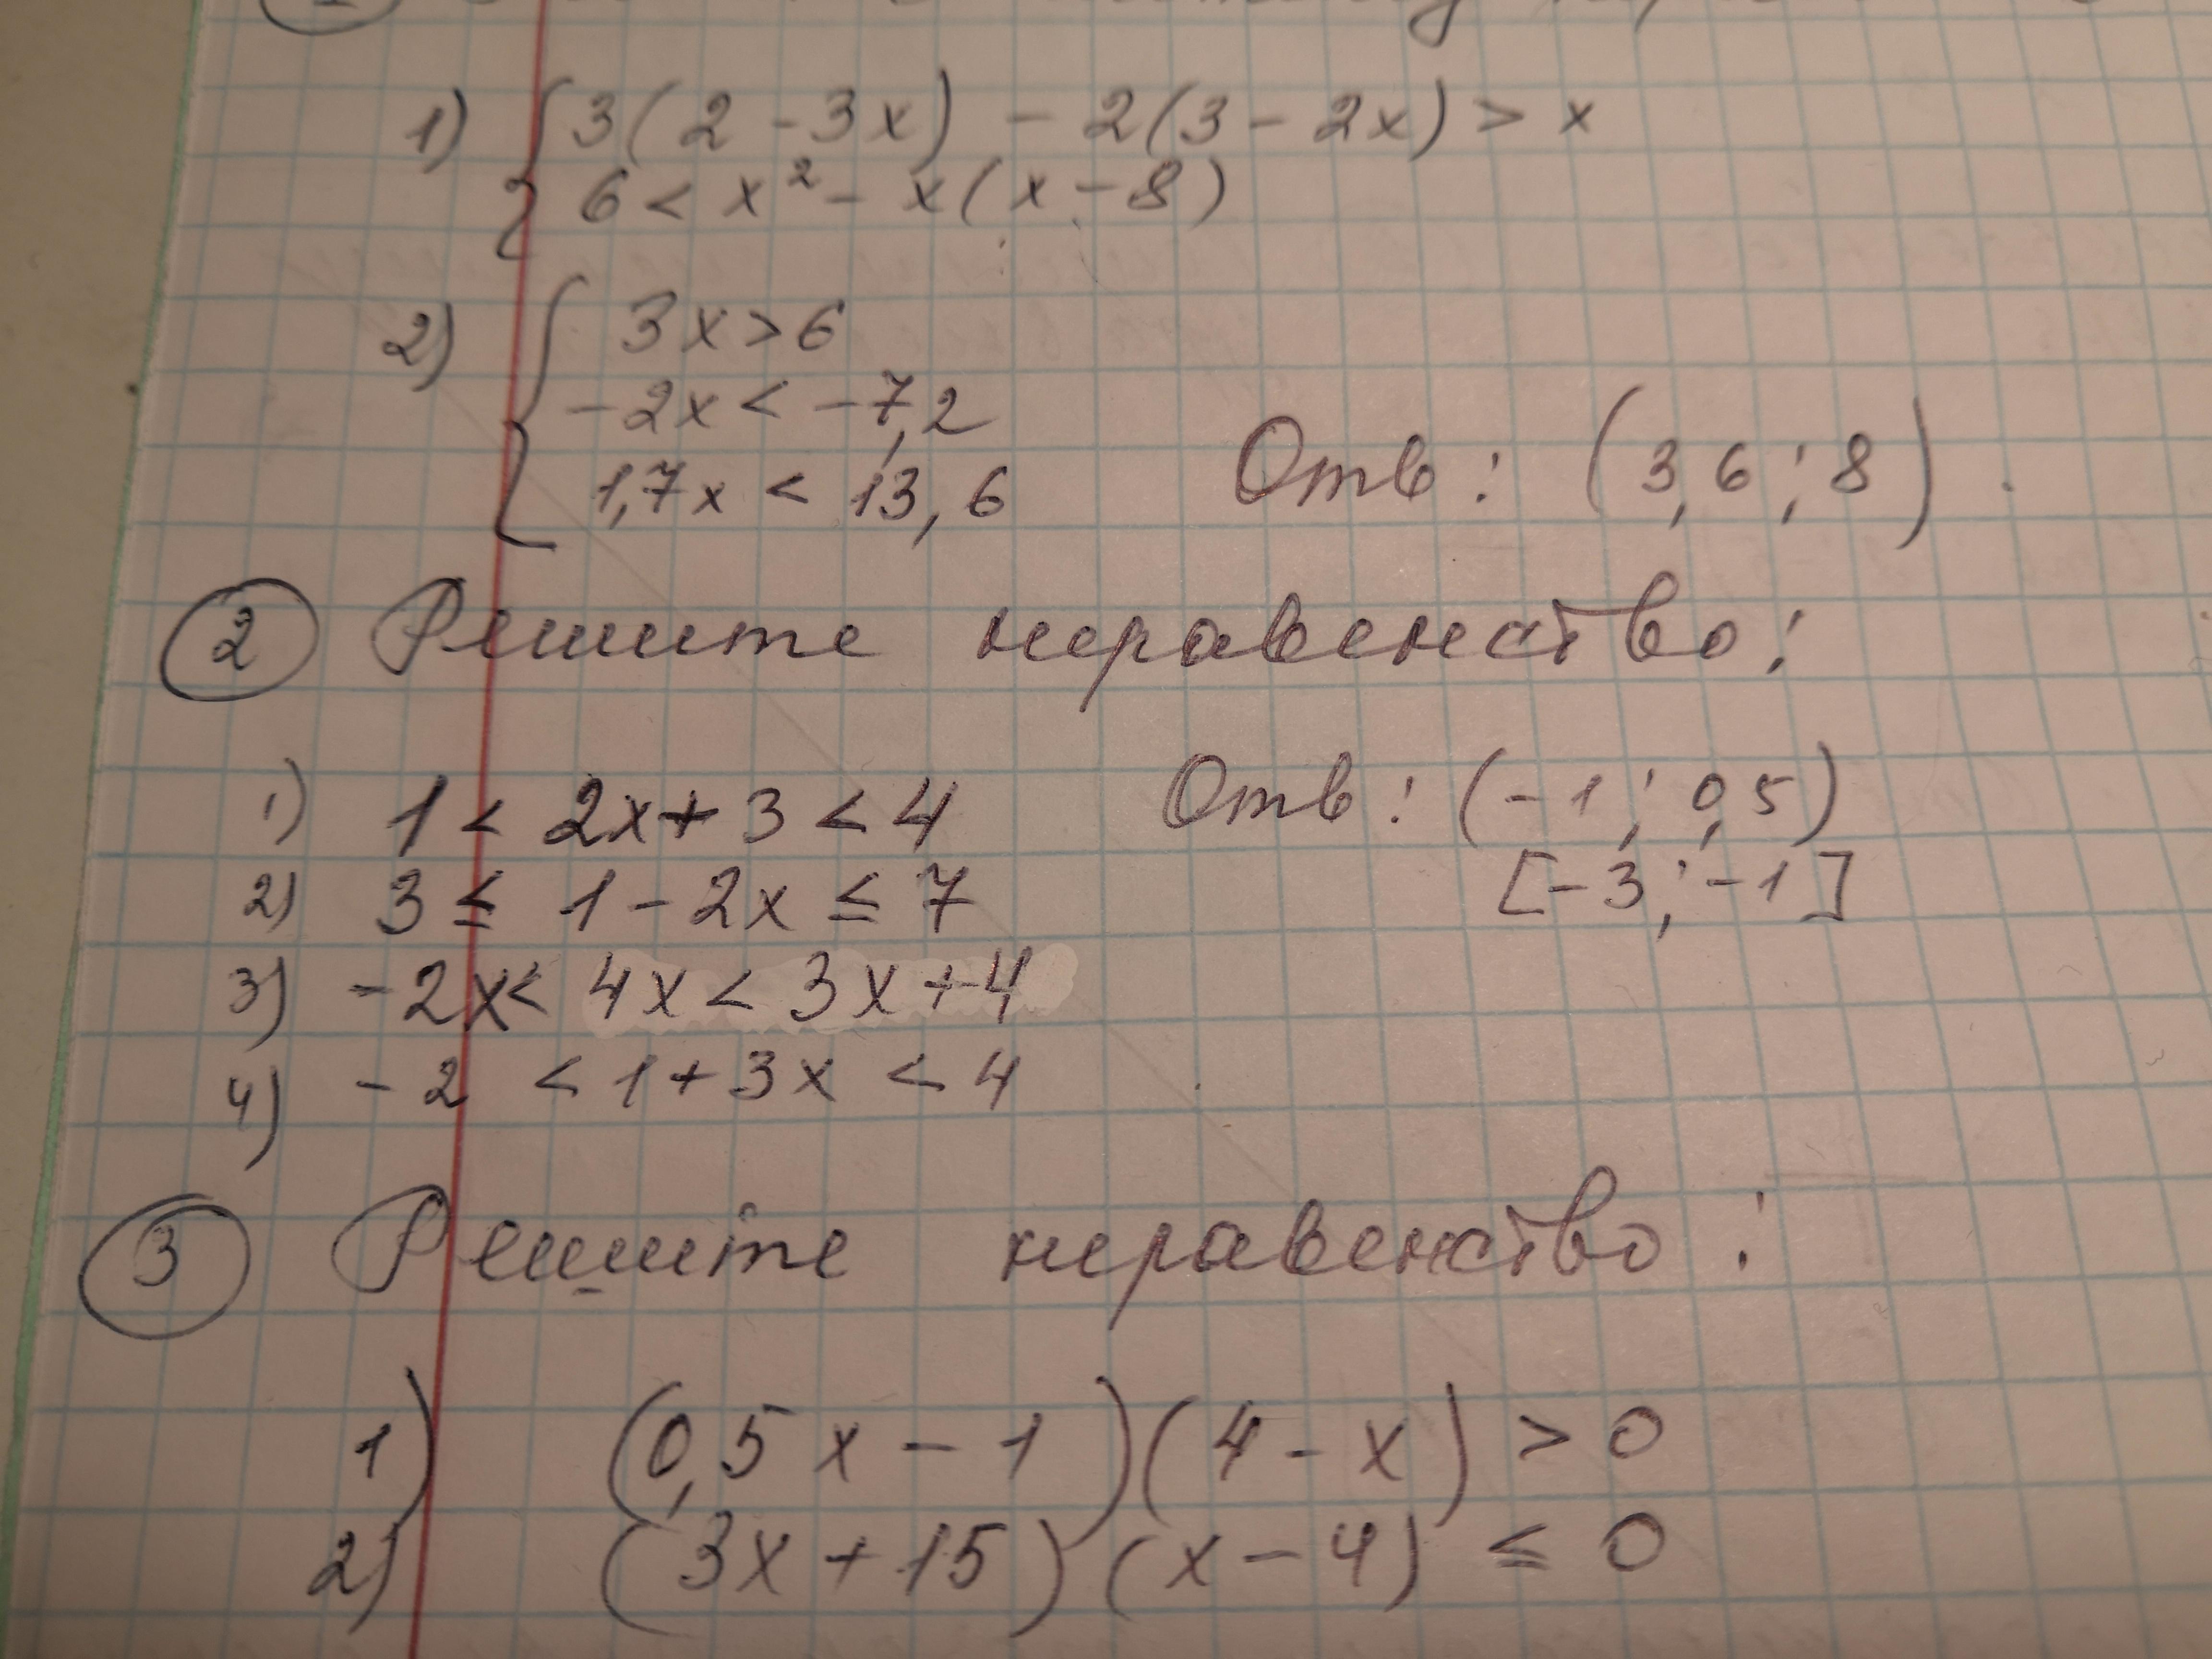 1) { 3(2 - 3x) - 2(3 - 2x) > x
6 < x² - x(x - 8)
2) { 3x > 6
-2x < -7,2
1,7x < 13,6 Отв: (3,6; 8).
2 Решите неравенство:
1) 1 < 2x + 3 < 4 Отв: (-1; 0,5)
2) 3 ≤ 1 - 2x ≤ 7 [-3; -1]
3) -2x < 4x < 3x + 4
4) -2 < 1 + 3x < 4
3 Решите неравенство:
1) (0,5x - 1)(4 - x) > 0
2) (3x + 15)(x - 4) ≤ 0